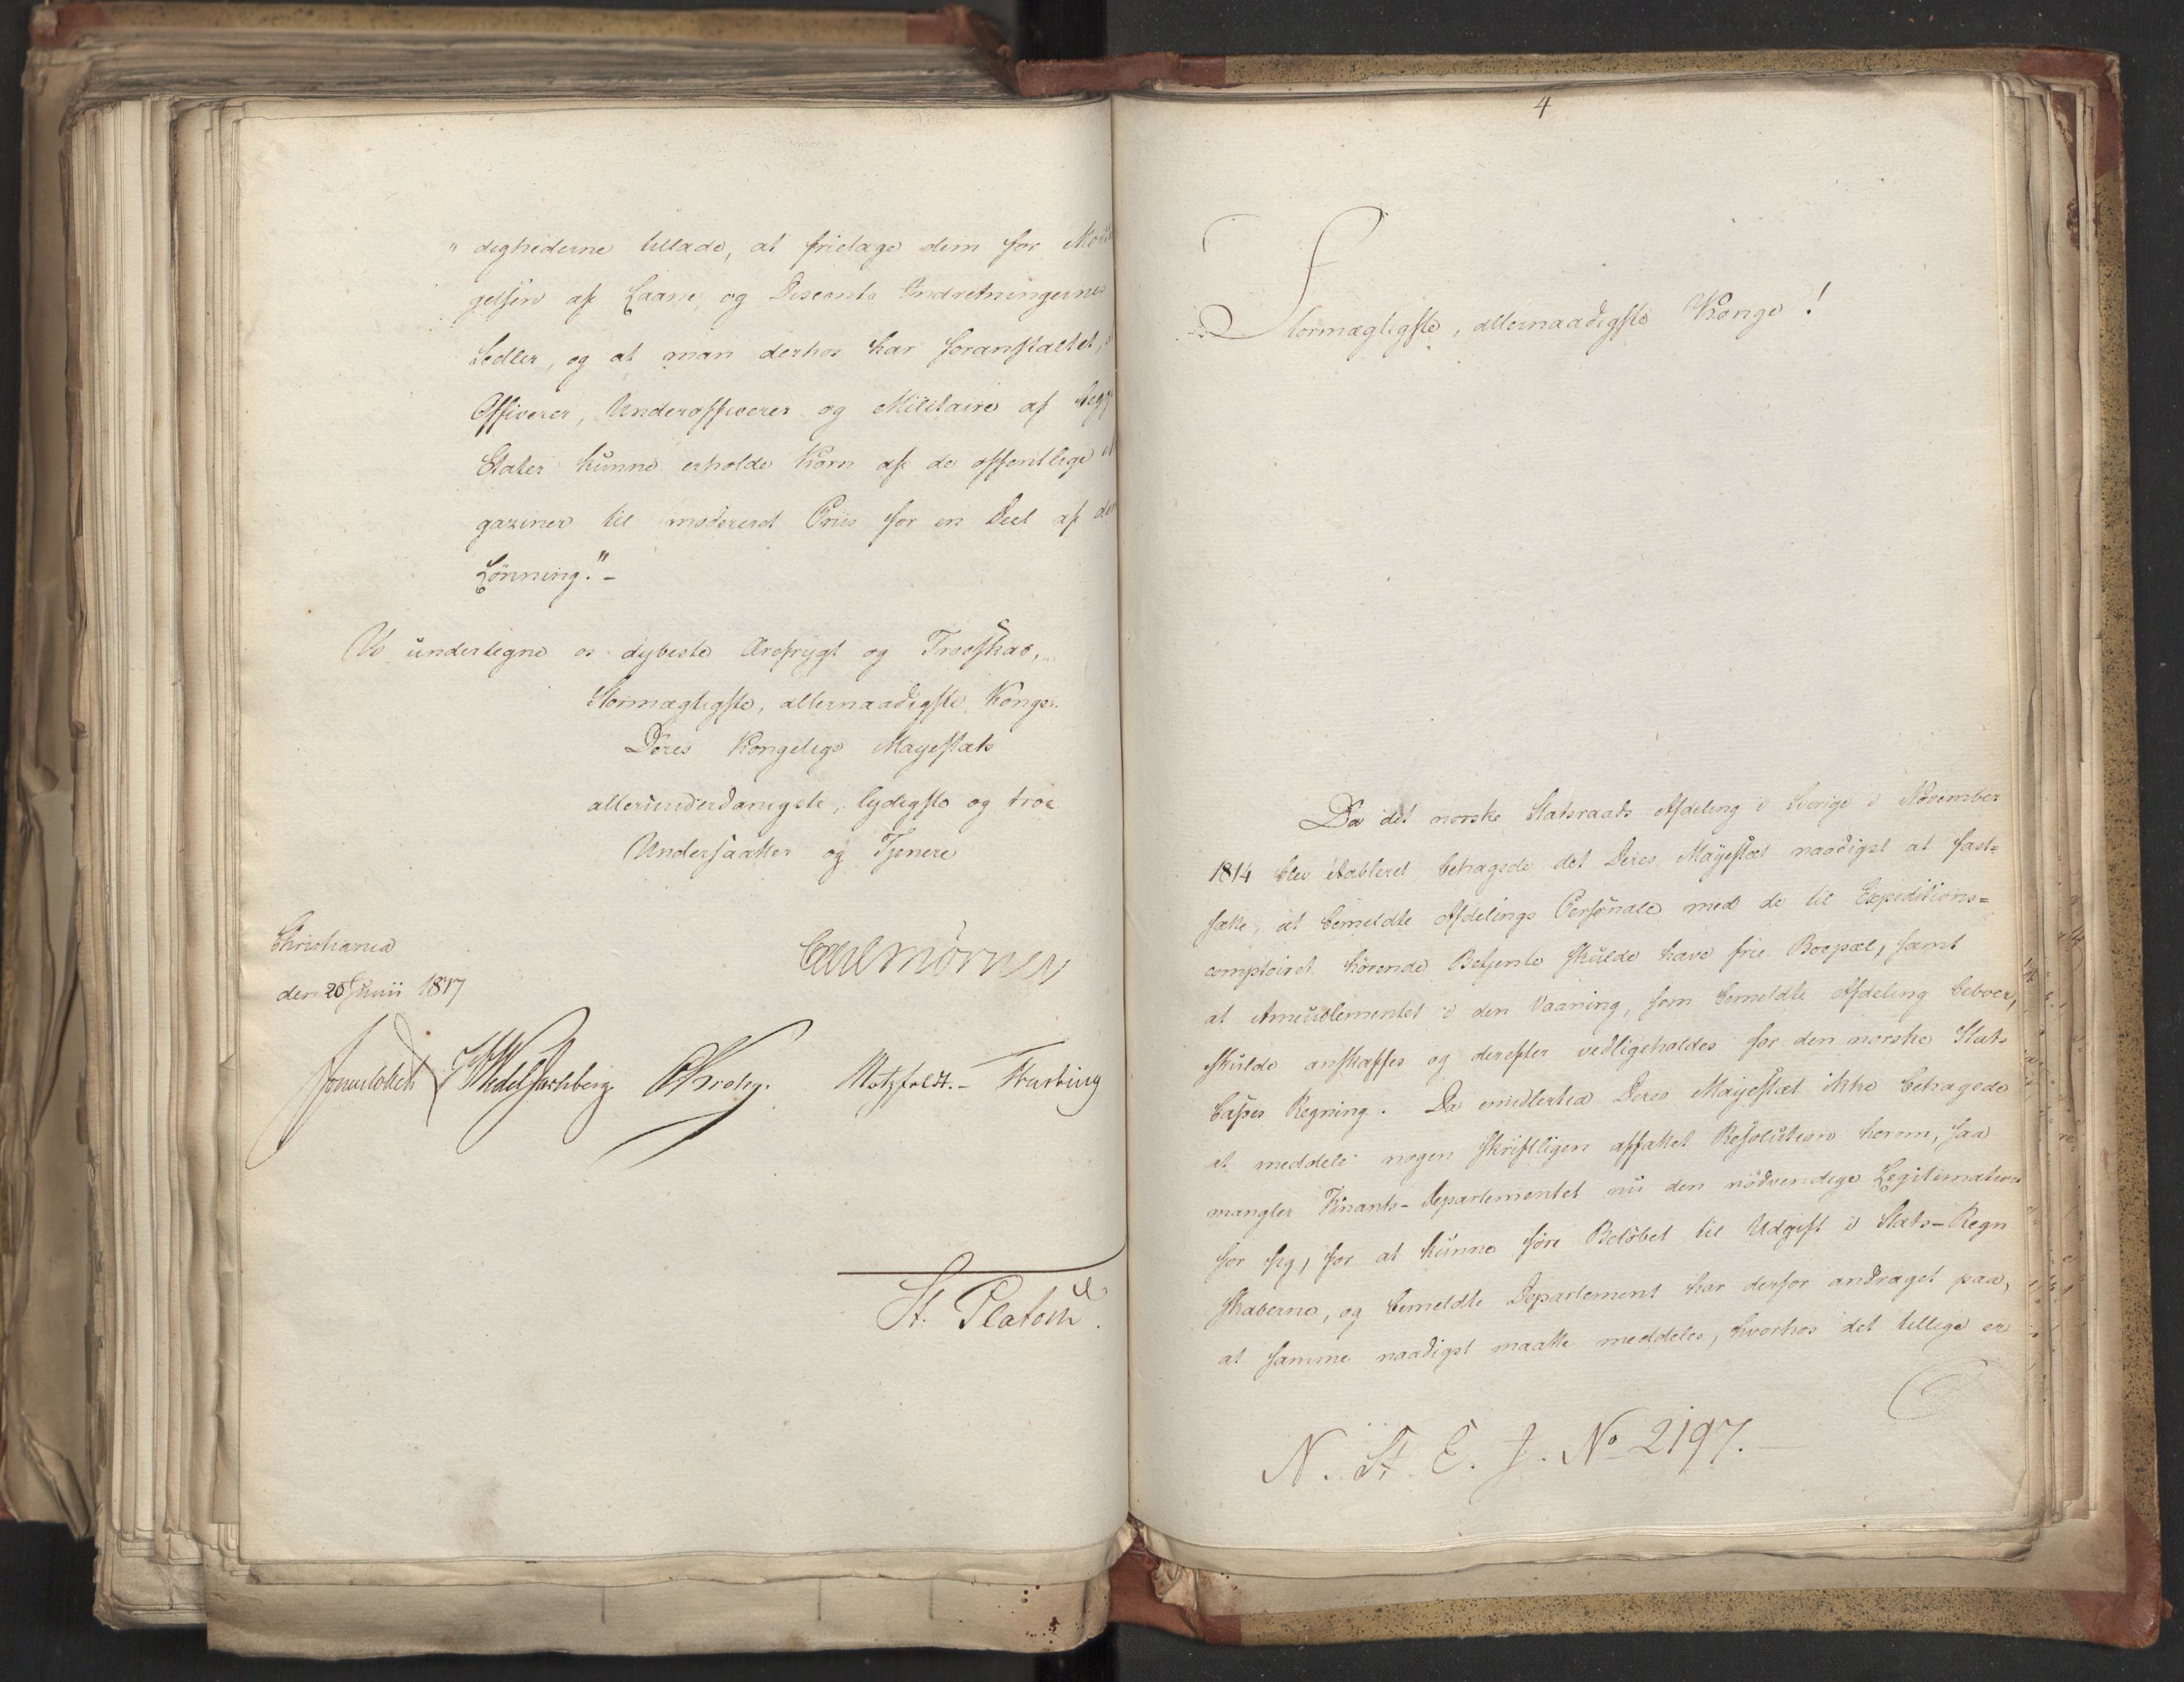 " dighederne tillade, at fritage dem for
gelsen af Laane og Disconto Indretningernes
Sedler, og at man derhos har foranstaltet,
Officerer, Underofficerer og Militaire af
Etater kunne erholde Korn af de offentlige
gaziner til modereret Priis for en Deel af
Lønning." -
Vi undertegne os dybeste Ærefrygt og Troeskab,
Stormægtigste, allernaadigste Konge.
Deres Kongelige Mayestæts
allerunderdanigste, lydigste og troe
Undersaatter og Tjenere
Christiania
den 20 Junii 1817
Carl Mörner
Sommerhielm HWedelJarlsberg CKrohg. Motzfeldt. - Fasting
St. Platou.
4
Stormægtigste, allernaadigste Konge!
Da det norske Statsraads Afdeling i Sverige i November
1814 blev etableret, behagede det Deres Mayestæt naadigst at fast=
sætte, at bemeldte Afdelings Personale med de til Expeditions=
comptoiret hørende Betjente skulde have frie Boepæl, samt
at Ameublementet i den Vaaning, som bemeldte Afdeling beboer,
skulde anskaffes og derefter vedligeholdes for den norske Stats
Casses Regning. Da imidlertid Deres Mayestæt ikke behagede
at meddele nogen skriftligen affattet Resolution herom, saa
mangler Finants-Departementet nu den nødvendige Legitimation
for sig, for at kunne føre Beløbet til Udgift i Stats-Regn
skaberne, og bemeldte Departement har derfor andraget paa,
at samme naadigst maatte meddeles, hvorhos det tillige er
N. St. E. J. No 2197. -